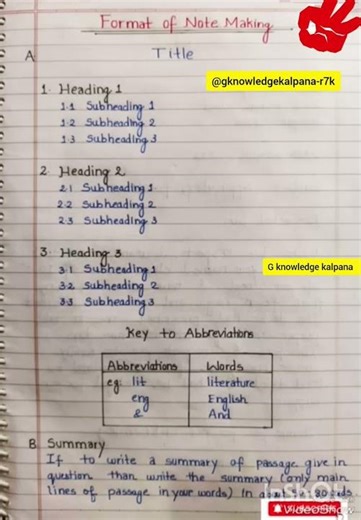 Format of Note Making
A Title
@gknowledgekalpana-r7k
1. Heading 1
1.1 Subheading 1
1.2 Subheading 2
1.3 Subheading 3
2. Heading 2
2.1 Subheading 1
2.2 Subheading 2
2.3 Subheading 3
3. Heading 3
G knowledge kalpana
3.1 Subheading 1
3.2 Subheading 2
3.3 Subheading 3
Key to Abbreviations
Abbreviations Words
eg: lit literature
eng English
& And
B. Summary
If to write a summary of passage give in
question than write the summary (only main
lines of passage in your words) In about
VideoShow